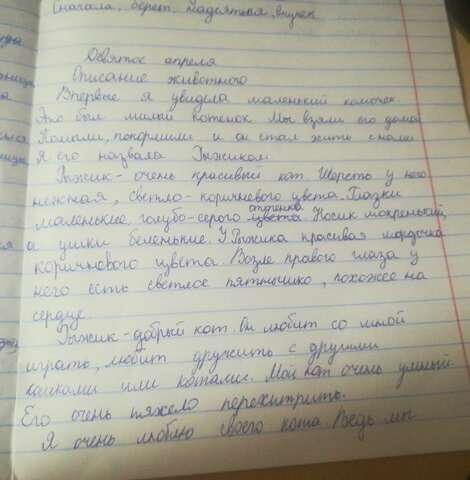 Сначала, берет, надсятная, внучек
Девятое апреля
Описание животного
Впервые я увидела маленький комочек.
Это был милый котенок. Мы взяли его домой
Помыли, покормили и он стал жить с нами
Я его назвала Рыжиком.
Рыжик - очень красивый кот. Шерсть у него
нежная, светло-коричневого цвета. Глазки
оттенка
маленькие, голубо-серого цвета Носик мокренький,
а ушки беленькие. У Рыжика красивая мордочка
коричневого цвета. Возле правого глаза у
него есть светлое пятнышко, похожее на
сердце.
Рыжик - добрый кот. Он любит со мной
играть, любит дружить с другими
кошками или котами. Мой кот очень умный.
Его очень тяжело перехитрить.
Я очень люблю своего кота. Ведь мы